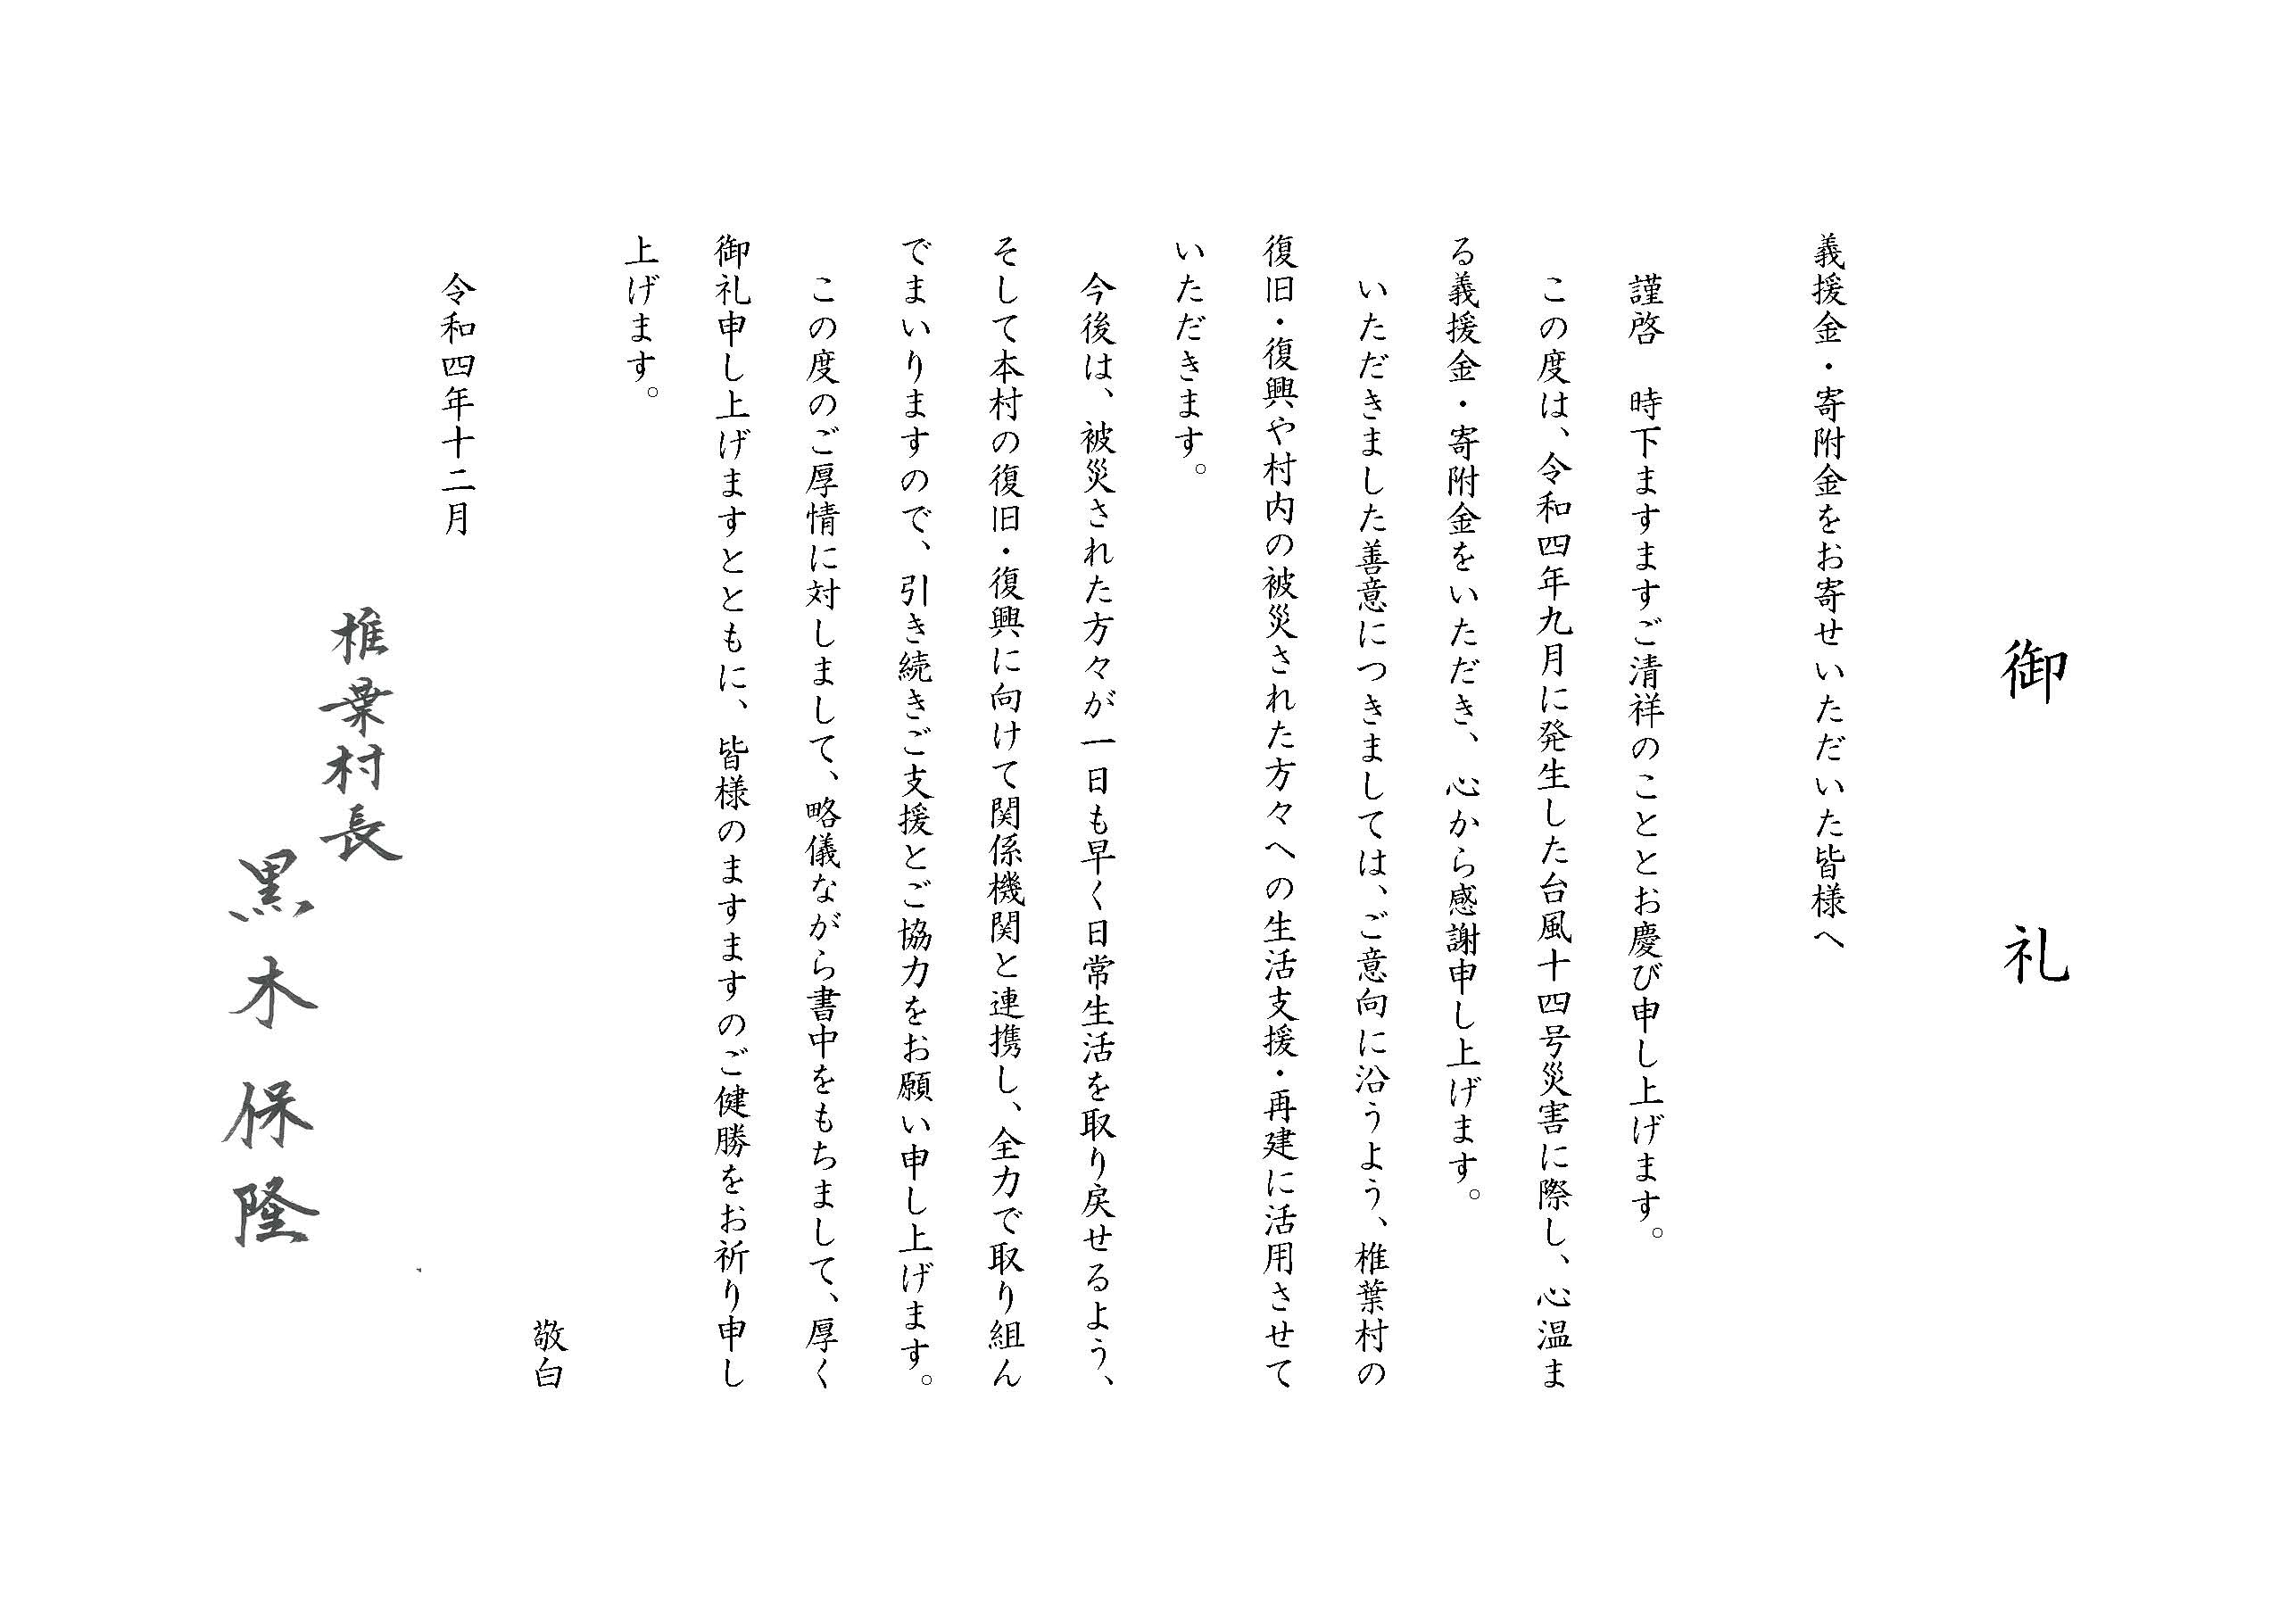 御礼
義援金・寄附金をお寄せいただいた皆様へ
謹啓　時下ますますご清祥のこととお慶び申し上げます。
この度は、令和四年九月に発生した台風十四号災害に際し、心温ま
る義援金・寄附金をいただき、心から感謝申し上げます。
いただきました善意につきましては、ご意向に沿うよう、椎葉村の
復旧・復興や村内の被災された方々への生活支援・再建に活用させて
いただきます。
今後は、被災された方々が一日も早く日常生活を取り戻せるよう、
そして本村の復旧・復興に向けて関係機関と連携し、全力で取り組ん
でまいりますので、引き続きご支援とご協力をお願い申し上げます。
この度のご厚情に対しまして、略儀ながら書中をもちまして、厚く
御礼申し上げますとともに、皆様のますますのご健勝をお祈り申し
上げます。
敬白
令和四年十二月
椎葉村長
黒木保隆